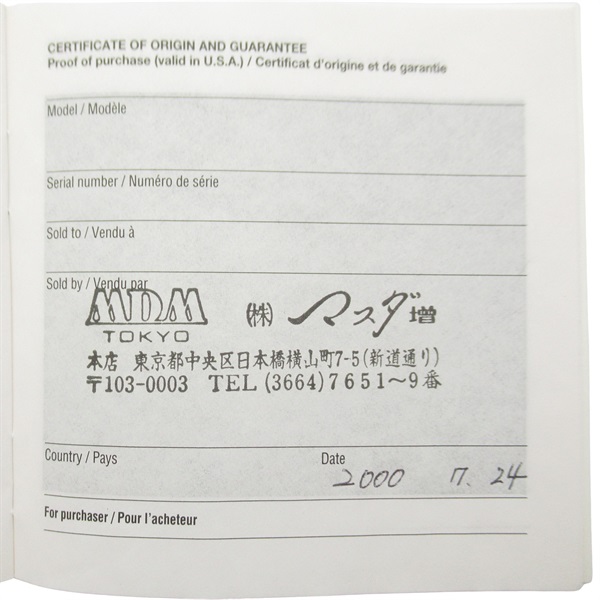 CERTIFICATE OF ORIGIN AND GUARANTEE
Proof of purchase (valid in U.S.A.) / Certificat d'origine et de garantie
Model / Modèle
Serial number / Numéro de série
Sold to / Vendu à
Sold by / Vendu par
MDM
TOKYO
㈱ マスダ増
本店 東京都中央区日本橋横山町7-5(新道通り)
〒103-0003 TEL (3664)7651～9番
Country / Pays
Date
2000 7. 24
For purchaser / Pour l'acheteur